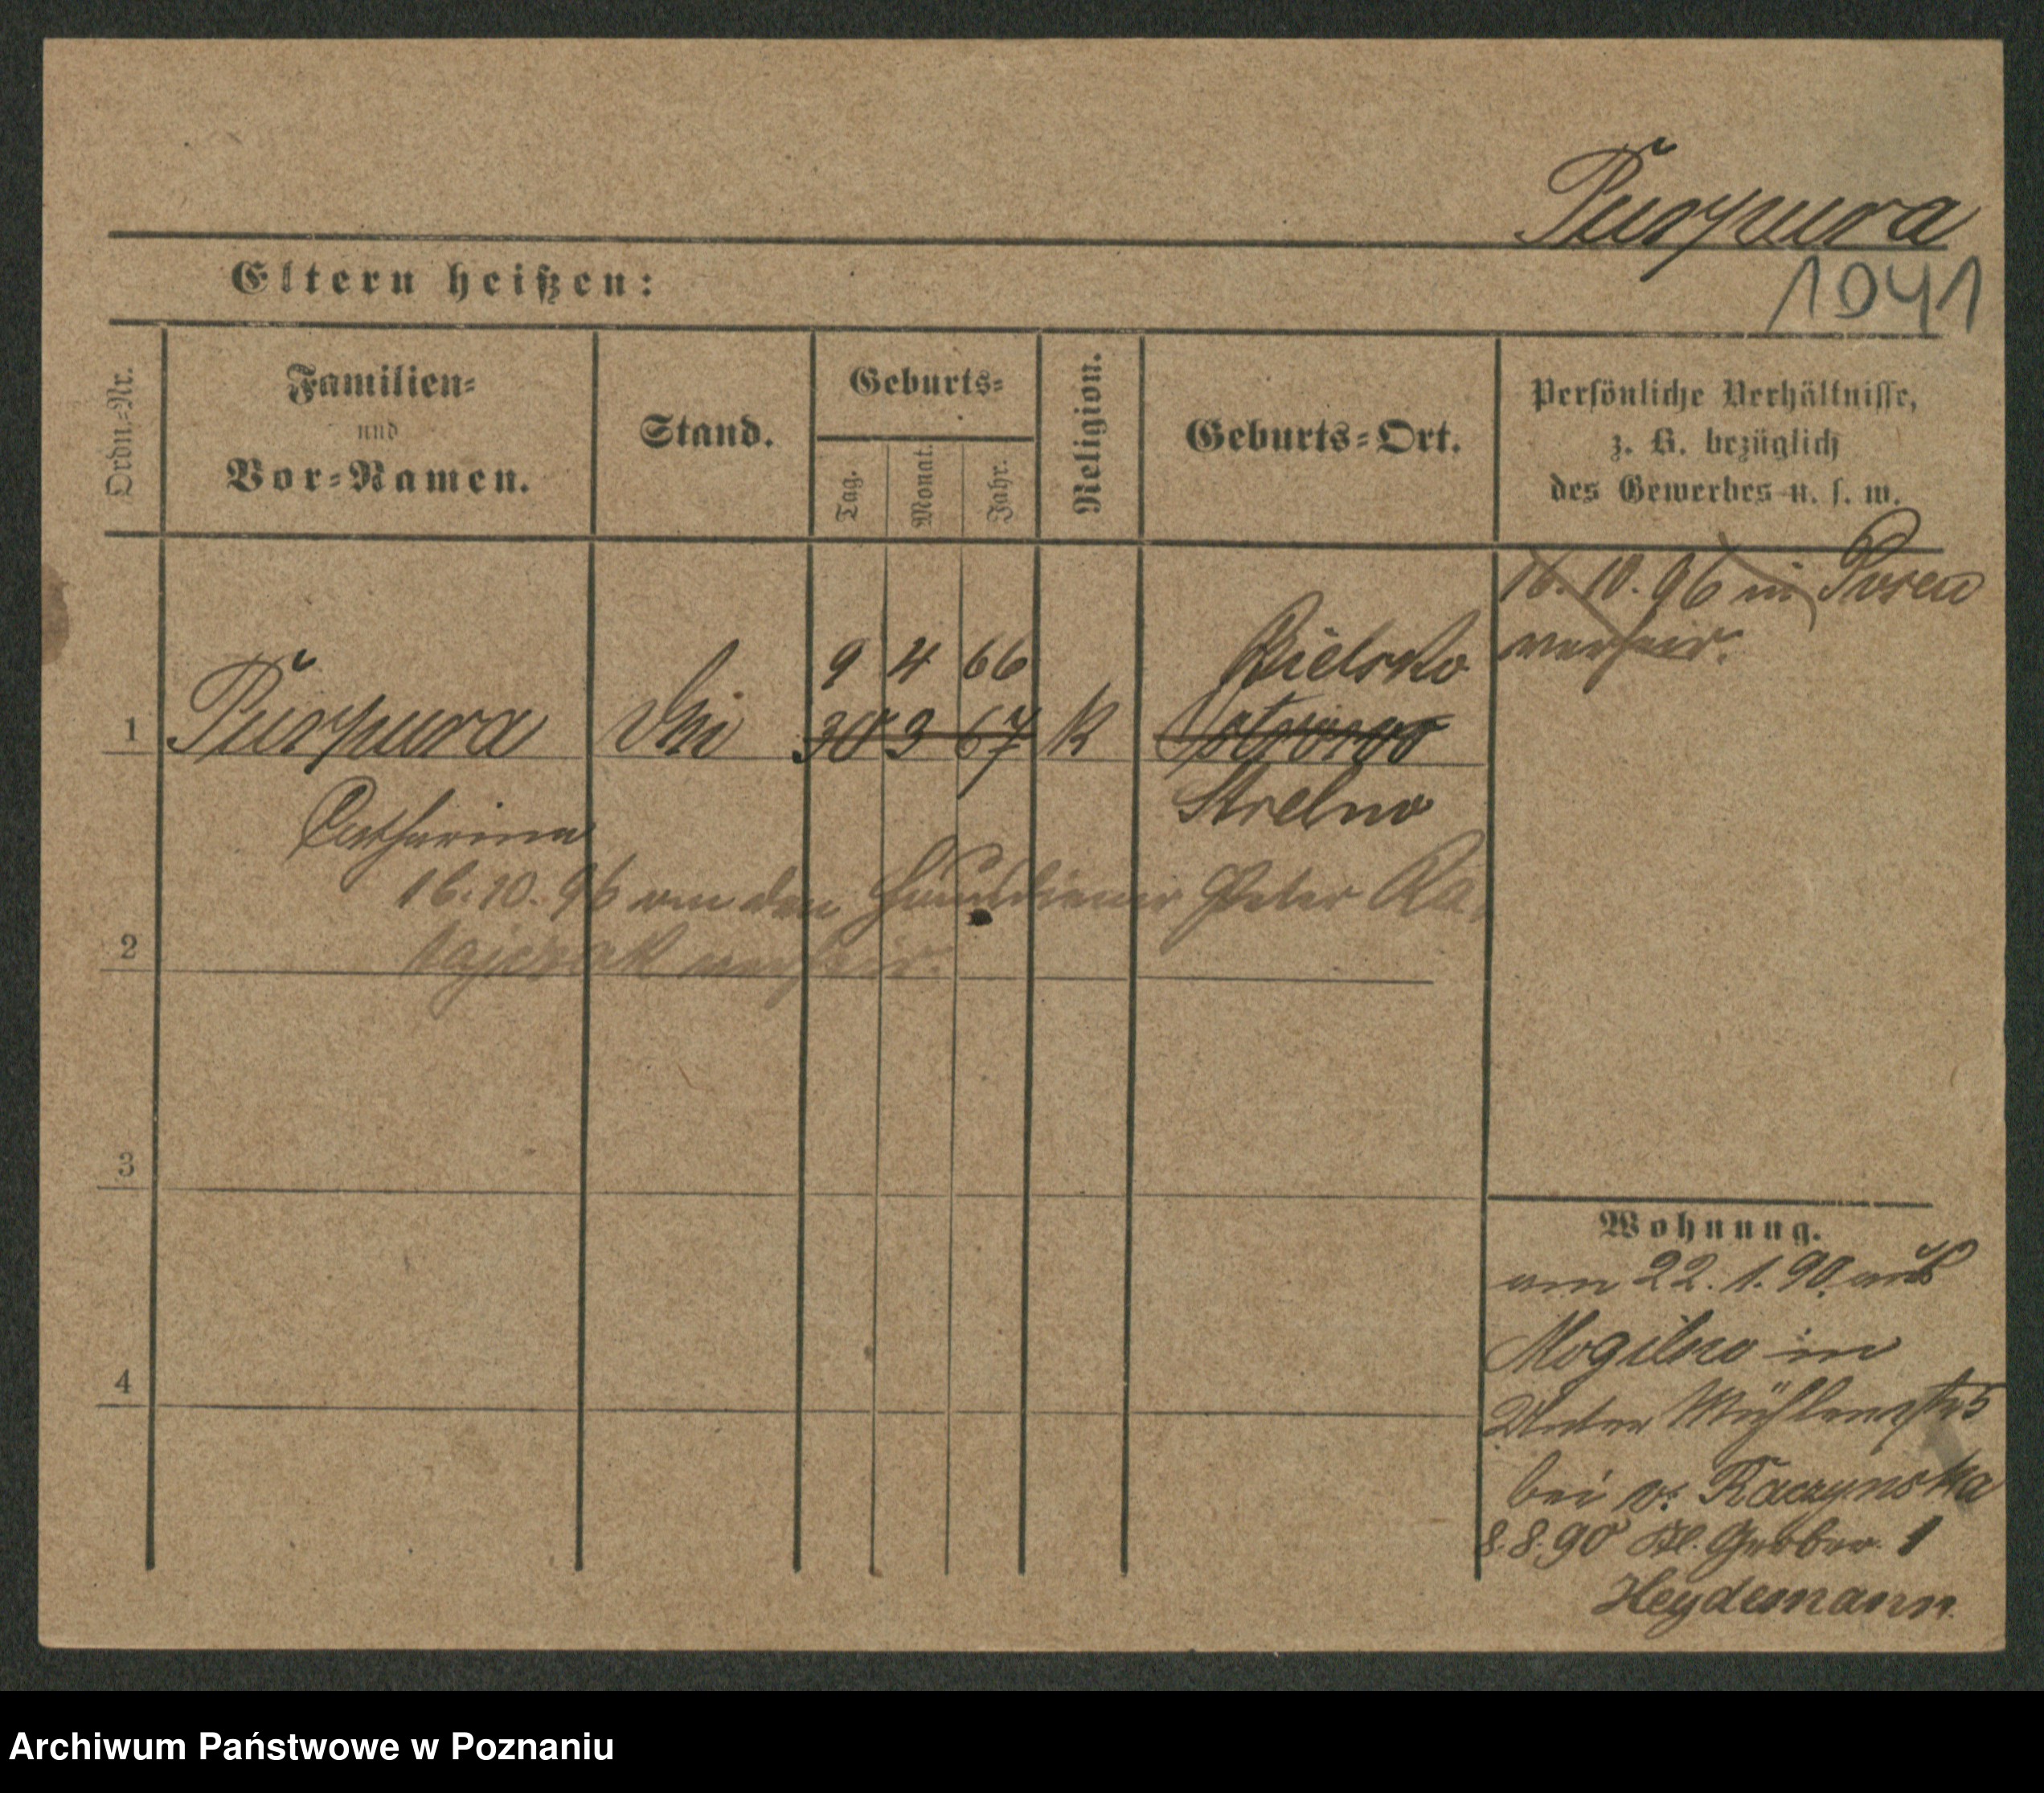 Purpura
1041
Eltern heißen:
Ordn.-Nr.
Familien-
und
Vor-Namen.
Stand.
Geburts-
Tag.
Monat.
Jahr.
Religion.
Geburts-Ort.
Persönliche Verhältnisse,
z. B. bezüglich
des Gewerbes u. s. w.
16. 10. 96 in Posen
verheir.
9 4 66 Bielsko
1 Purpura 30 3 67 K Ostrowo
Catharina Strelno
16. 10. 96 an den Hausdiener Peter Ra-
2 tajczak verheir.
3
4
Wohnung.
am 22. 1. 90. aus
Mogilno in
Unter Mühlenstr 5
bei v. Raczynska
8. 8. 90 Kl. Gerber. 1
Heydemann.
Archiwum Państwowe w Poznaniu